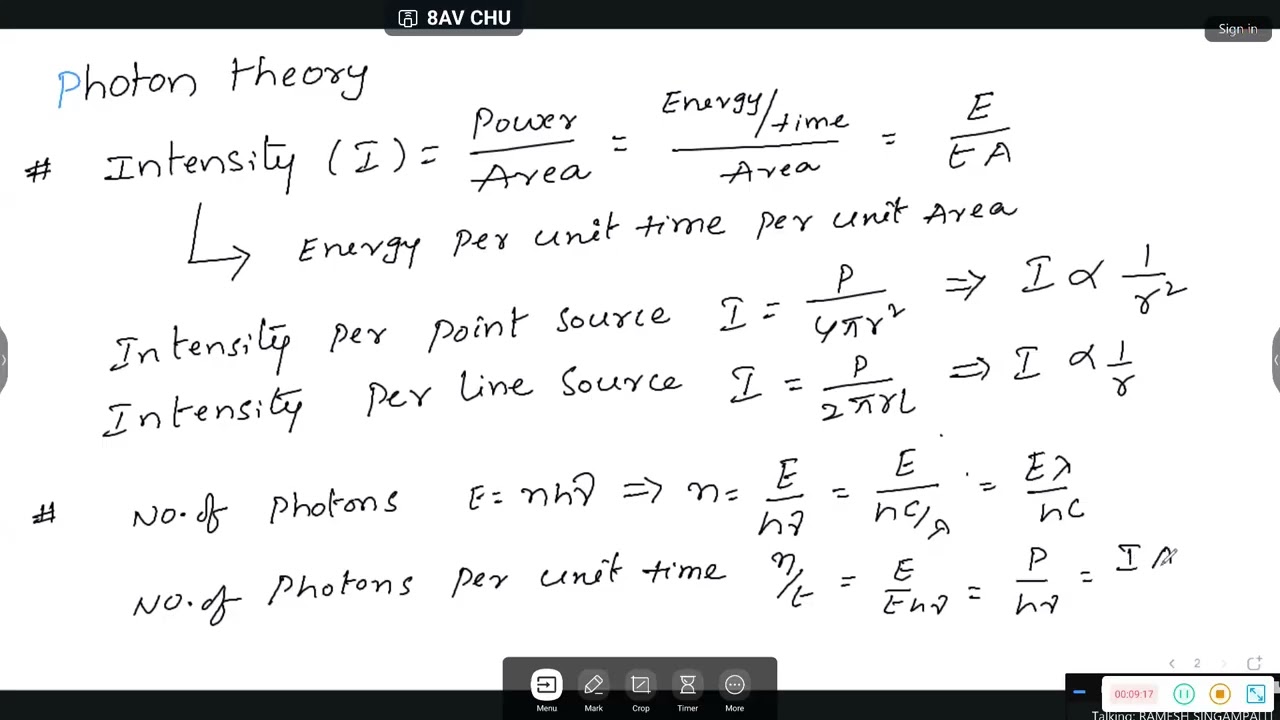 8AV CHU
Sign in
Photon theory
# Intensity (I) = Power/Area = Energy/time/Area = E/tA
↳ Energy per unit time per unit Area
Intensity per point source I = P/4πr² ⇒ I ∝ 1/r²
Intensity per line source I = P/2πrl ⇒ I ∝ 1/r
# No. of photons E = nhν ⇒ n = E/hν = E/hc/λ = Eλ/hc
No. of photons per unit time n/t = E/thν = P/hν = IA
2
Menu Mark Crop Timer More
00:09:17
Talking: RAMESH SINGAMPALLI